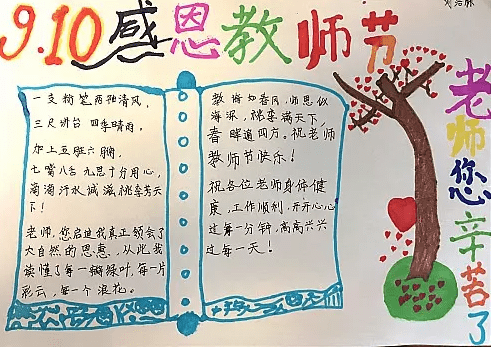 9.10感恩教师节
老师您辛苦了
一支粉笔两袖清风，
三尺讲台 四季晴雨，
加上五脏六腑，
七嘴八舌 九思十分用心，
滴滴汗水 诚滋桃李芳天
下！
老师，您启迪我真正领会了
大自然的恩惠，从此我
读懂了每一瓣绿叶，每一片
彩云，每一个浪花。
教诲如春风，师恩似
海深，桃李满天下，
春晖遍四方，祝老师
教师节快乐！
祝各位老师身体健
康，工作顺利，开开心心
过每一分钟，高高兴兴
过每一天！